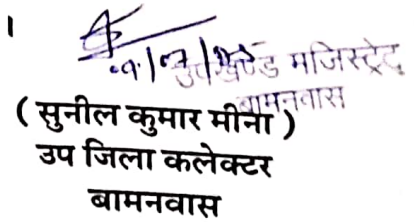 ।
उपखण्ड मजिस्ट्रेट
बामनवास
( सुनील कुमार मीना )
उप जिला कलेक्टर
बामनवास